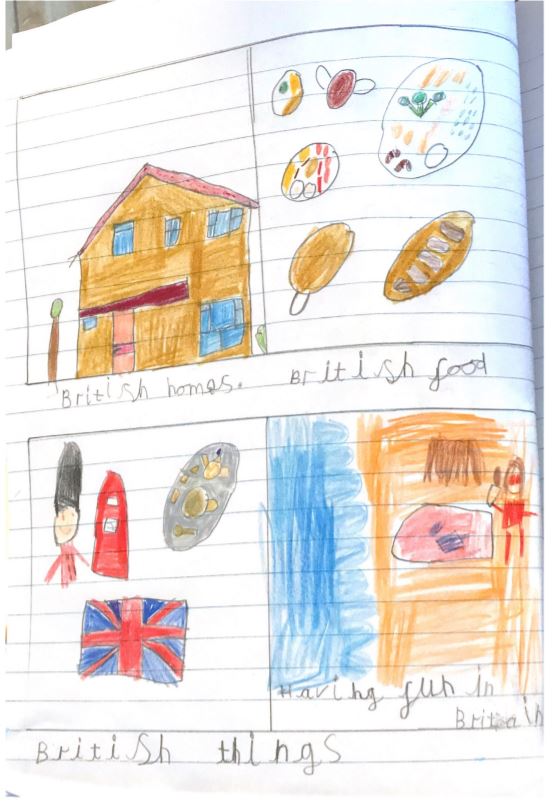 British homes.
British food
Having fun in
Britain
British things